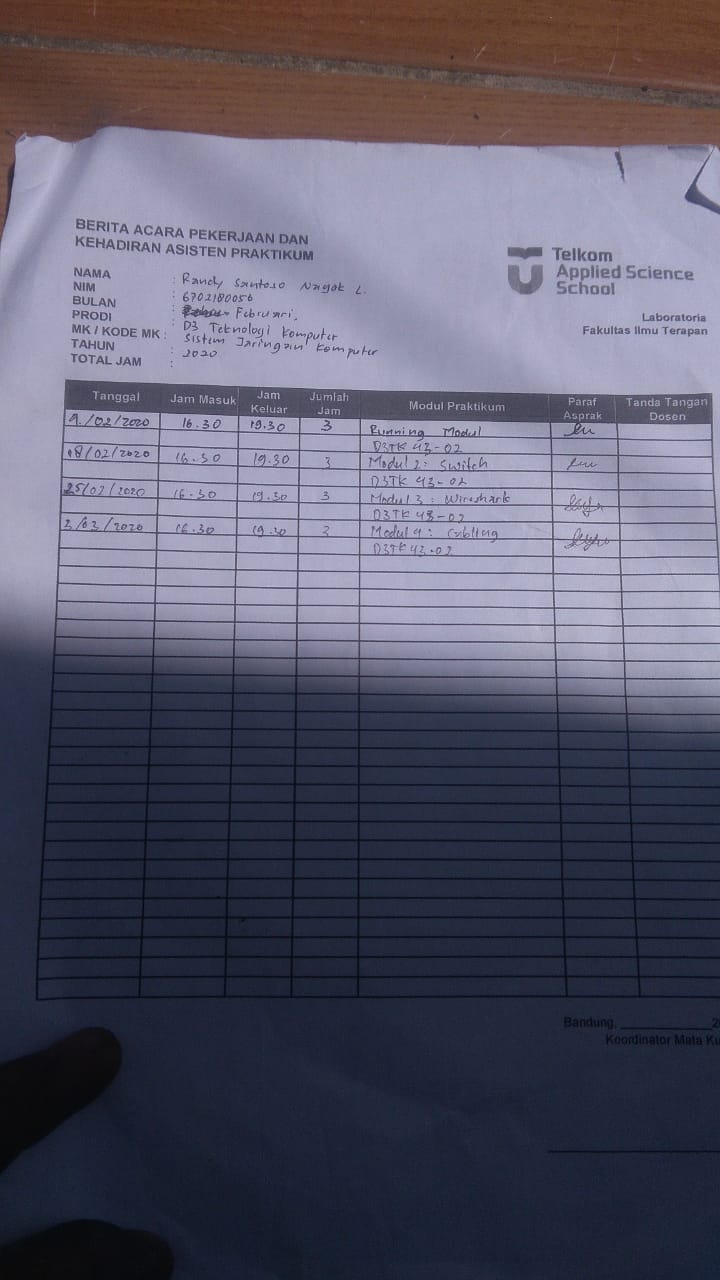 BERITA ACARA PEKERJAAN DAN
KEHADIRAN ASISTEN PRAKTIKUM
Telkom
Applied Science
School
Laboratoria
Fakultas Ilmu Terapan
NAMA : Randy Santoso L.
NIM : 6702180056
BULAN : Februari.
PRODI : D3 Teknologi Komputer
MK / KODE MK : Sistem Jaringan Komputer
TAHUN : 2020
TOTAL JAM :
Tanggal Jam Masuk Jam Keluar Jumlah Jam Modul Praktikum Paraf Asprak Tanda Tangan Dosen
16.30 19.30 3 Running Modul
D3TK 43-02
18/02/2020 16.30 19.30 3 Modul 2: Switch
D3TK 43-02
25/02/2020 16.30 19.30 3 Modul 3: Wireshark
D3TK 43-02
3/03/2020 16.30 19.30 3 Modul 4:
D3TK 43-02
Bandung, ____________2
Koordinator Mata Ku